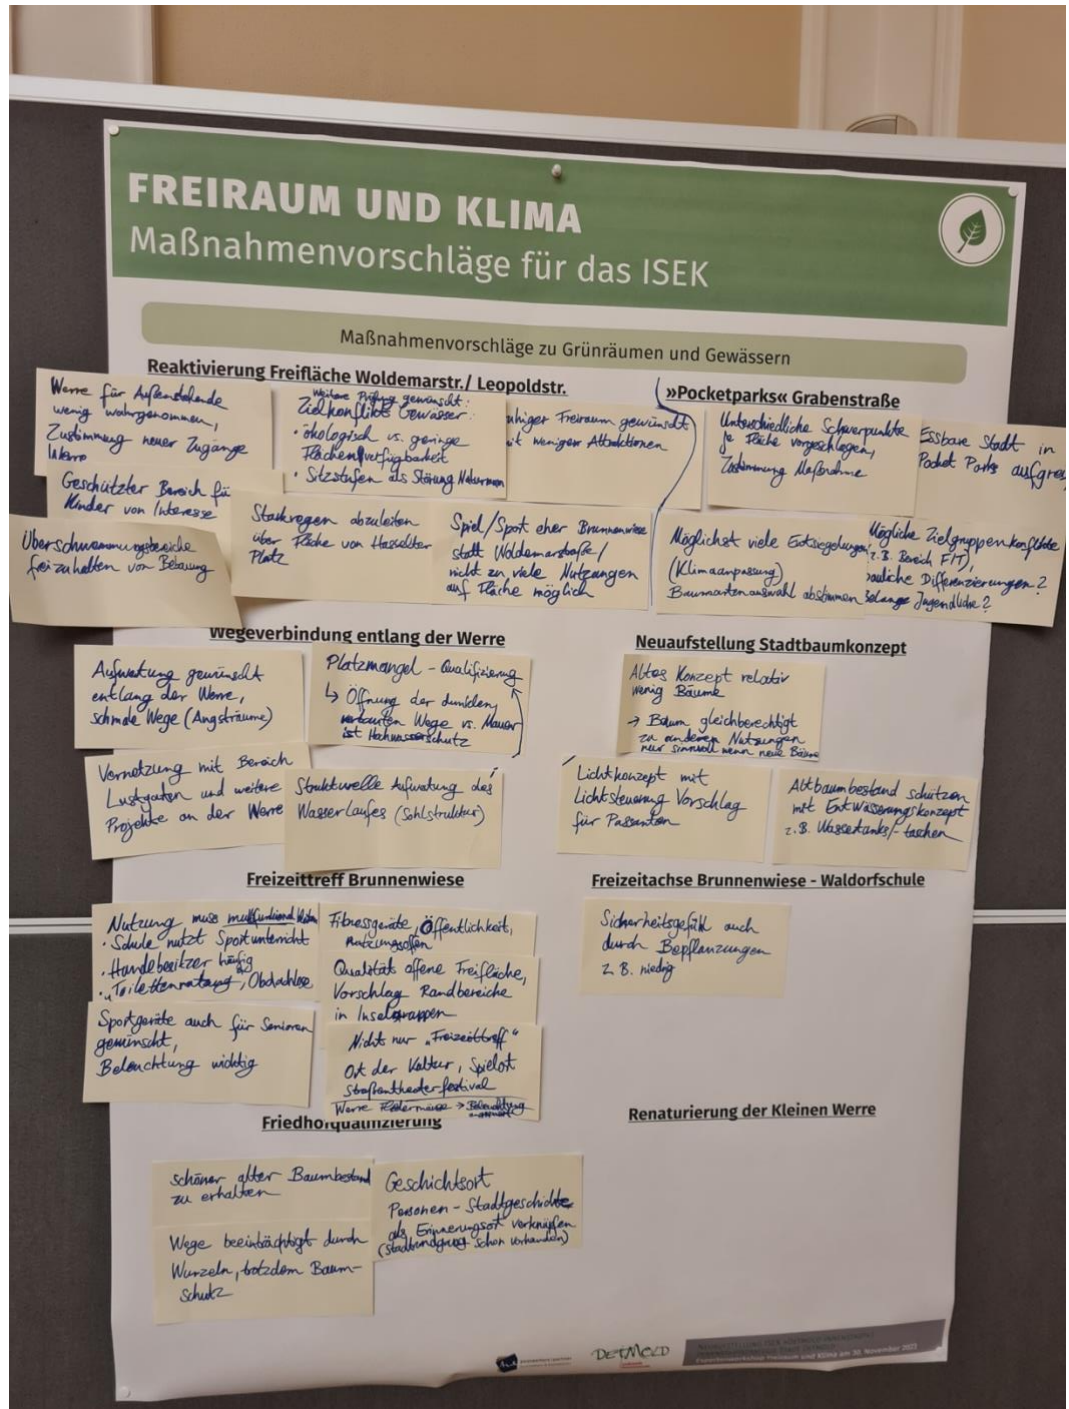 FREIRAUM UND KLIMA
Maßnahmenvorschläge für das ISEK
Maßnahmenvorschläge zu Grünräumen und Gewässern
Reaktivierung Freifläche Woldemarstr./ Leopoldstr.
Werre für Außenstehende
wenig wahrgenommen,
Zustimmung neuer Zugänge
Werre
Geschützter Bereich fü
Kinder von Interesse
Überschwemmungsbereiche
freizuhalten von Bebauung
weitere Prüfung gewünscht:
Zielkonflikte Gewässer:
• ökologisch vs. geringe
Flächenverfügbarkeit
• Sitzstufen als Störung Naturraum
uhiger Freiraum gewünscht
it weniger Attraktionen
Starkregen abzuleiten
über Fläche von Hasselter
Platz
Spiel/Sport eher Brunnenwiese
statt Woldemarstraße/
nicht zu viele Nutzungen
auf Fläche möglich
»Pocketparks« Grabenstraße
Unterschiedliche Schwerpunkte
je Fläche vorgeschlagen,
Zustimmung Maßnahme
Essbare Stadt in
Pocket Parks aufgrei
Möglichst viele Entsiegelungen
(Klimaanpassung)
Baumartenauswahl abstimmen
Mögliche Zielgruppenkonflikte
z.B. Bereich FIT),
bauliche Differenzierungen?
Belange Jugendliche?
Wegeverbindung entlang der Werre
Aufwertung gewünscht
entlang der Werre,
schmale Wege (Angsträume)
Platzmangel - Qualifizierung
↳ Öffnung der dunklen,
verbauten Wege vs. Mauer
ist Hochwasserschutz
Vernetzung mit Bereich
Lustgarten und weitere
Projekte an der Werre
Strukturelle Aufwertung des
Wasserlaufes (Sohlstruktur)
Neuaufstellung Stadtbaumkonzept
Altes Konzept relativ
wenig Bäume
→ Baum gleichberechtigt
zu anderen Nutzungen
nur sinnvoll wenn neue Bäume
Lichtkonzept mit
Lichtsteuerung Vorschlag
für Passanten
Altbaumbestand schützen
mit Entwässerungskonzept
z.B. Wassertanks/-taschen
Freizeittreff Brunnenwiese
Nutzung muss multifunktional bleiben
• Schule nutzt Sportunterricht
• Hundebesitzer häufig
• "Toilettennutzung", Obdachlose
Sportgeräte auch für Senioren
gewünscht,
Beleuchtung wichtig
Fitnessgeräte, Öffentlichkeit,
nutzungsoffen
Qualität offene Freifläche,
Vorschlag Randbereiche
in Inselgruppen
Nicht nur "Freizeittreff"
Ort der Kultur, Spielort
Straßentheaterfestival
Werre Fledermäuse → Beleuchtung
Freizeitachse Brunnenwiese - Waldorfschule
Sicherheitsgefühl auch
durch Bepflanzungen
z.B. niedrig
Friedhofqualifizierung
schöner alter Baumbestand
zu erhalten
Wege beeinträchtigt durch
Wurzeln, trotzdem Baum-
schutz
Geschichtsort
Personen - Stadtgeschichte
als Erinnerungsort verknüpfen
(Stadtrundgang schon vorhanden)
Renaturierung der Kleinen Werre
DETMOLD
Freiraum und Klima am 30. November 2022